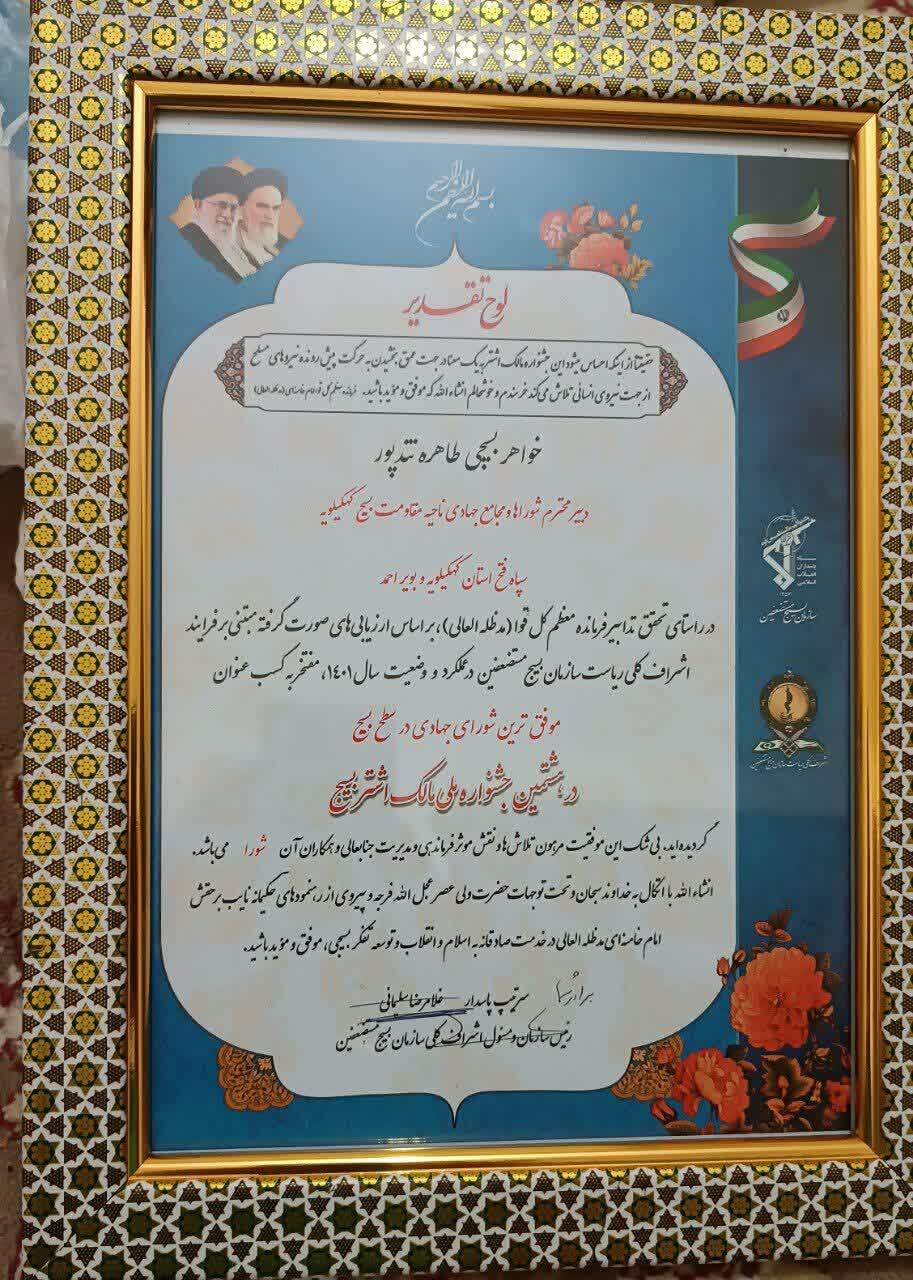 بسم الله الرحمن الرحیم
لوح تقدیر
حقیقتاً از اینکه احساس میشود این جشنواره مالک اشتر به یک معنا در جهت عمق بخشیدن به حرکت پیش رونده نیروهای مسلح
از جهت نیروی انسانی تلاش می کند خرسندم و خوشحالم انشاء الله که موفق و مؤید باشید. فرمانده معظم کل قوا امام خامنه ای (مدظله العالی)
خواهر بسیجی طاهره تندپور
دبیر محترم شوراها و مجامع جهادی ناحیه مقاومت بسیج کهگیلویه
سپاه فتح استان کهگیلویه و بویراحمد
در راستای تحقق تدابیر فرمانده معظم کل قوا (مدظله العالی)، بر اساس ارزیابی های صورت گرفته مبتنی بر فرایند
اشراف کلی ریاست سازمان بسیج مستضعفین در عملکرد و وضعیت سال ۱۴۰۱، مفتخر به کسب عنوان
موفق ترین شورای جهادی در سطح بسیج
در هشتمین جشنواره ملی مالک اشتر بسیج
گردیده اید. بی شک این موفقیت مرهون تلاش ها و نقش موثر فرماندهی و مدیریت جنابعالی و همکاران آن شورا می باشد.
انشاء الله با اتکال به خداوند سبحان و تحت توجهات حضرت ولی عصر عجل الله فرجه و پیروی از رهنمودهای حکیمانه نایب برحقش
امام خامنه ای مدظله العالی در خدمت صادقانه به اسلام و انقلاب و توسعه تفکر بسیجی، موفق و مؤید باشید.
سرتیپ پاسدار غلامرضا سلیمانی
رئیس سازمان و مسئول اشراف کلی سازمان بسیج مستضعفین
سپاه
پاسداران
انقلاب
اسلامی
سازمان بسیج مستضعفین
اشراف کلی ریاست سازمان بسیج مستضعفین